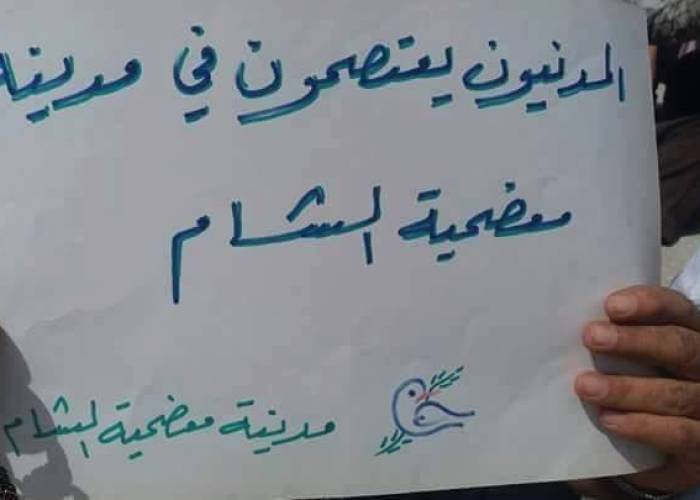 المدنيون يعتصمون في مدينة
معضمية الشام
مدينة معضمية الشام